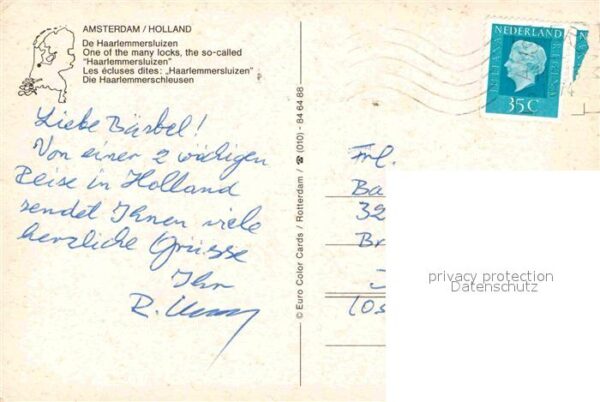 AMSTERDAM / HOLLAND
De Haarlemmersluizen
One of the many locks, the so-called
"Haarlemmersluizen"
Les écluses dites: „Haarlemmersluizen"
Die Haarlemmerschleusen
Liebe Bärbel!
Von einer 2 wöchigen
Reise in Holland
sendet Ihnen viele
herzliche Grüsse
Ihr
R.
© Euro Color Cards / Rotterdam / ☎ (010) - 84 64 88
NEDERLAND
JULIANA REGINA
35 C
Frl.
Ba
32
Br
privacy protection
Datenschutz